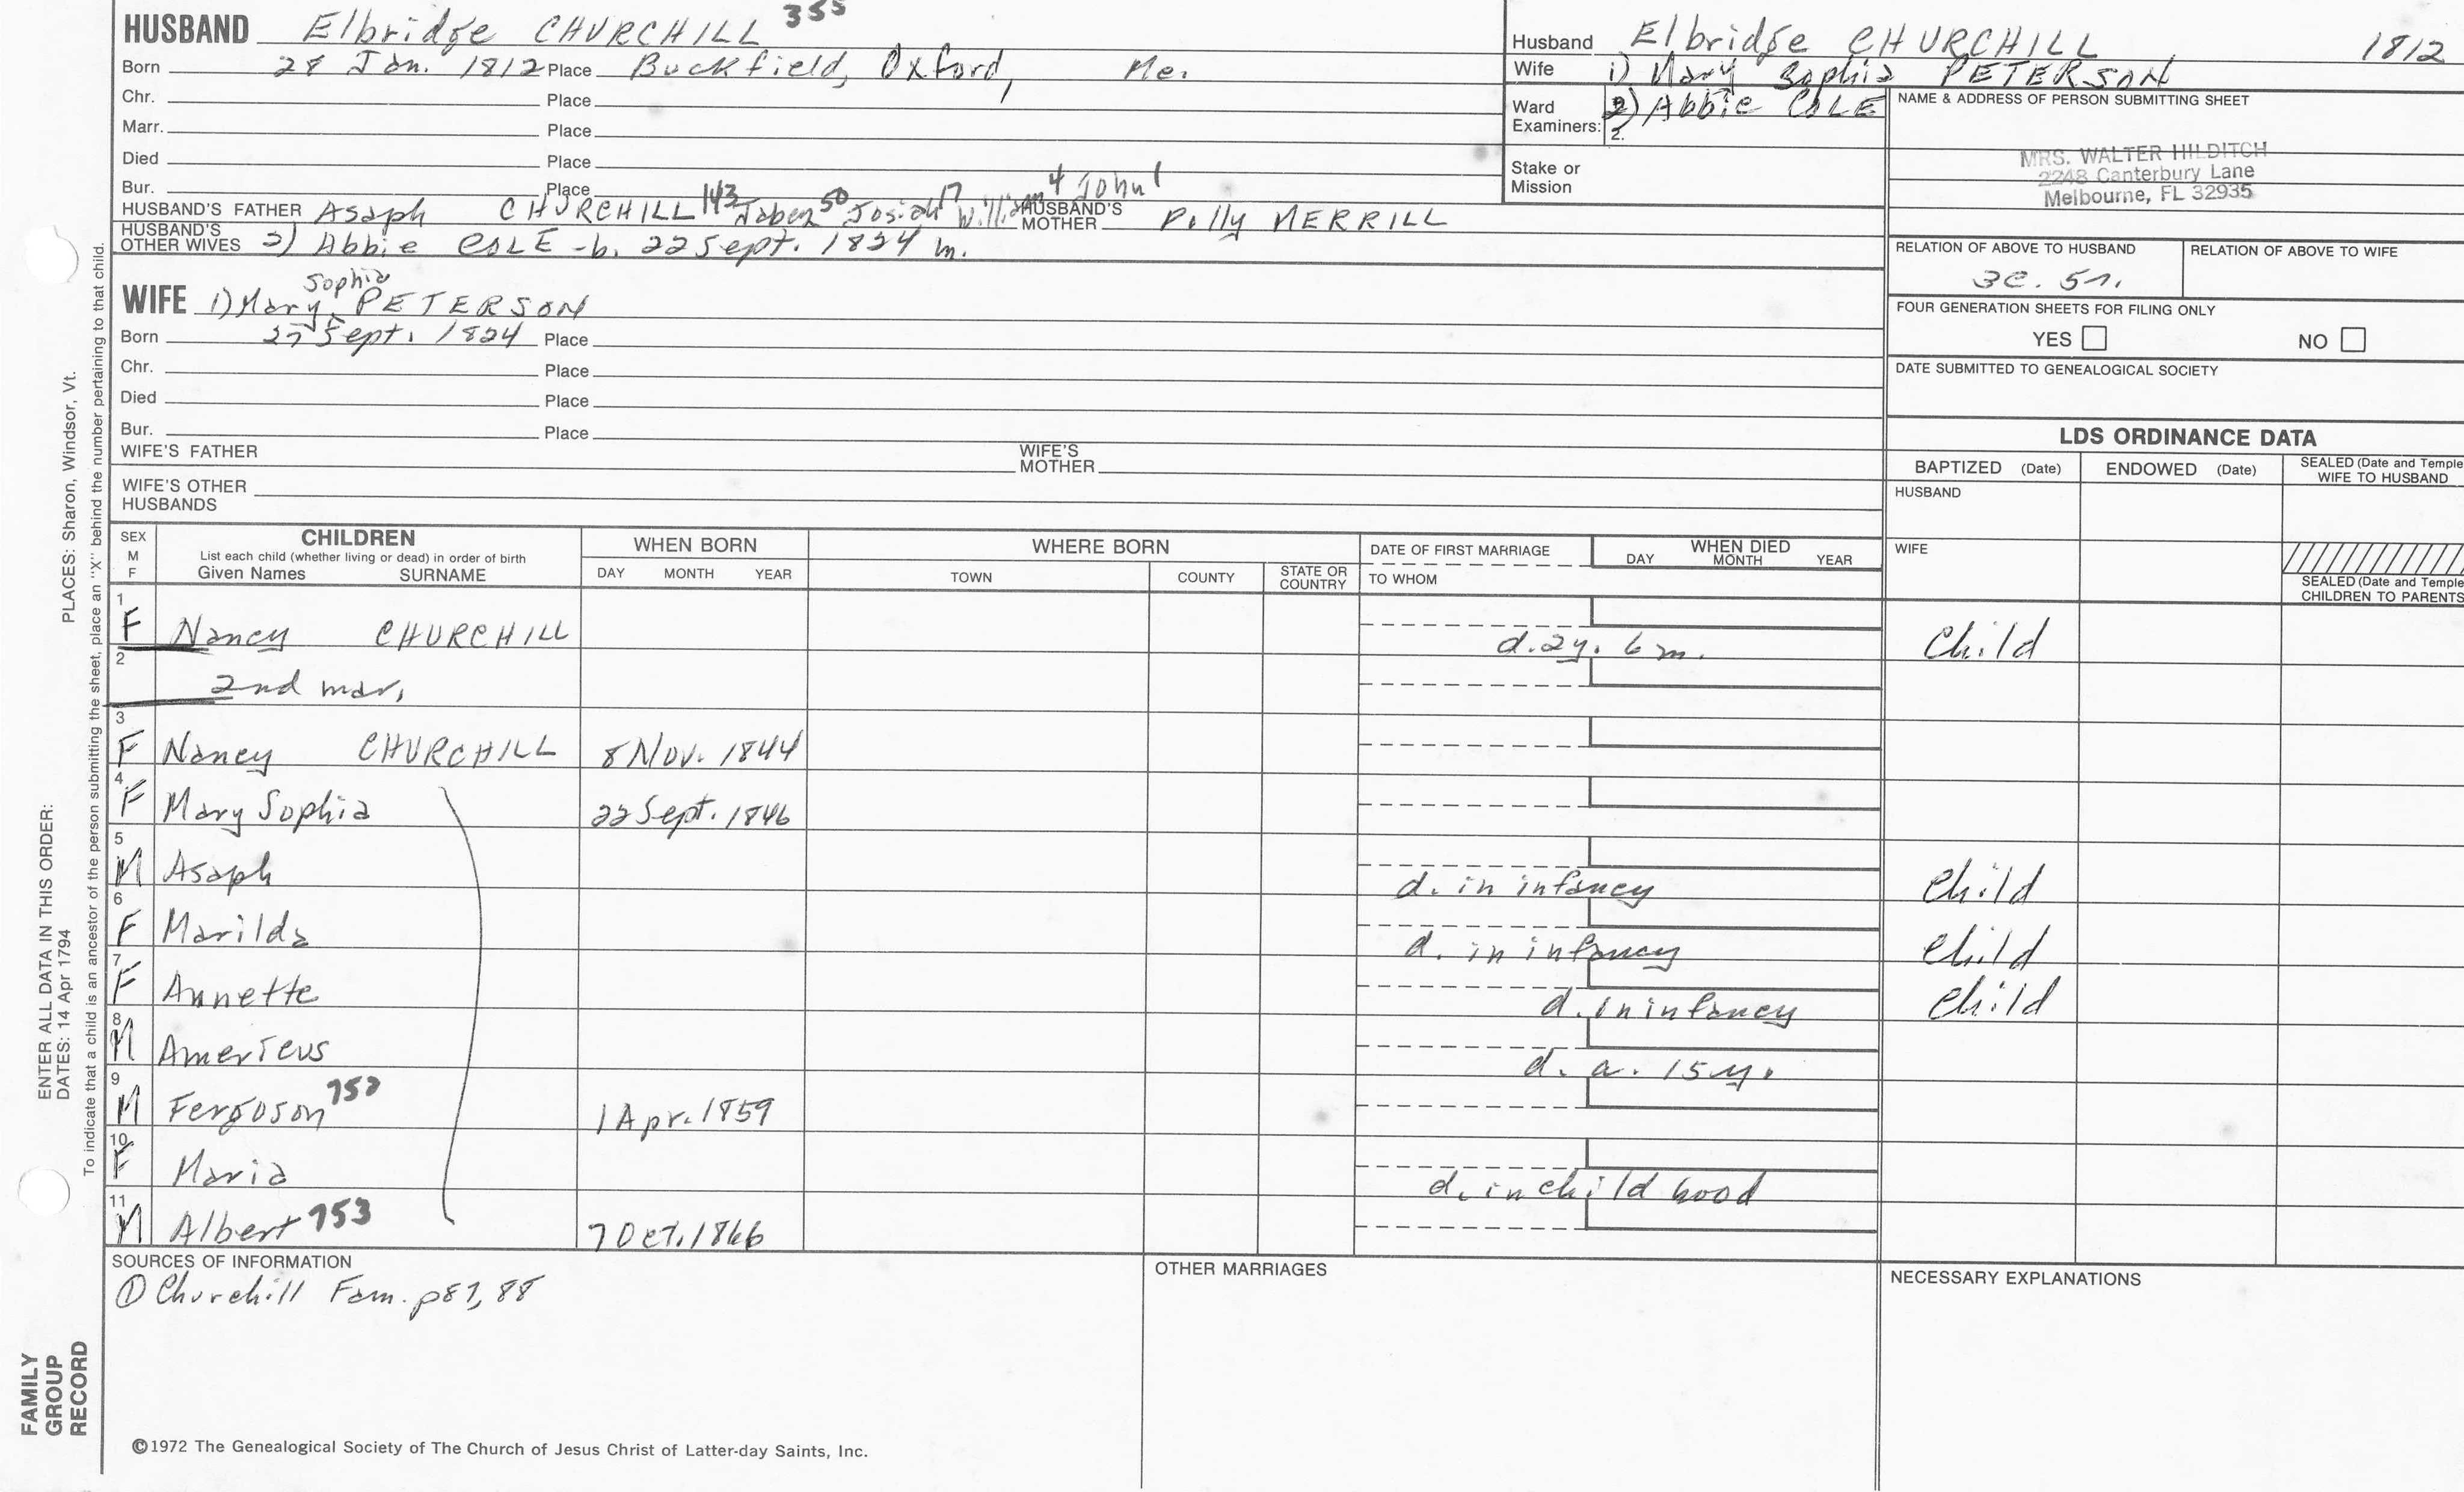 HUSBAND Elbridge CHURCHILL 355
Born 28 Jan. 1812 Place Buckfield, Oxford, Me.
Chr. Place
Marr. Place
Died Place
Bur. Place
HUSBAND'S FATHER Asaph CHURCHILL 143 Jabez 50 Josiah 17 William 4 John 1 HUSBAND'S MOTHER Polly MERRILL
HUSBAND'S OTHER WIVES 2) Abbie COLE -b. 22 Sept. 1824 m.
WIFE 1) Mary Sophia PETERSON
Born 27 Sept. 1824 Place
Chr. Place
Died Place
Bur. Place
WIFE'S FATHER WIFE'S MOTHER
WIFE'S OTHER HUSBANDS
Husband Elbridge CHURCHILL 1812
Wife 1) Mary Sophia PETERSON
Ward Examiners: 2) Abbie COLE
2.
Stake or Mission
NAME & ADDRESS OF PERSON SUBMITTING SHEET
MRS. WALTER HILDITCH
2248 Canterbury Lane
Melbourne, FL 32935
RELATION OF ABOVE TO HUSBAND RELATION OF ABOVE TO WIFE
3C. 5r.
FOUR GENERATION SHEETS FOR FILING ONLY
YES NO
DATE SUBMITTED TO GENEALOGICAL SOCIETY
LDS ORDINANCE DATA
BAPTIZED (Date) ENDOWED (Date) SEALED (Date and Temple WIFE TO HUSBAND
HUSBAND
WIFE
SEALED (Date and Temple CHILDREN TO PARENTS
SEX M F CHILDREN WHEN BORN WHERE BORN DATE OF FIRST MARRIAGE WHEN DIED
List each child (whether living or dead) in order of birth
Given Names SURNAME DAY MONTH YEAR TOWN COUNTY STATE OR COUNTRY TO WHOM DAY MONTH YEAR
1 F Nancy CHURCHILL d. 2y. 6 m. Child
2 2nd mar.
3 F Nancy CHURCHILL 8 Nov. 1844
4 F Mary Sophia 22 Sept. 1846
5 M Asaph d. in infancy Child
6 F Marilda d. in infancy Child
7 F Annette d. in infancy Child
8 M Americus d. a. 15 y.
9 M Ferguson 752 1 Apr. 1859
10 F Maria d. in child hood
11 M Albert 753 7 Oct. 1866
SOURCES OF INFORMATION
① Churchill Fam. p87, 88
OTHER MARRIAGES
NECESSARY EXPLANATIONS
©1972 The Genealogical Society of The Church of Jesus Christ of Latter-day Saints, Inc.
FAMILY GROUP RECORD
ENTER ALL DATA IN THIS ORDER:
DATES: 14 Apr 1794
PLACES: Sharon, Windsor, Vt.
To indicate that a child is an ancestor of the person submitting the sheet, place an "X" behind the number pertaining to that child.